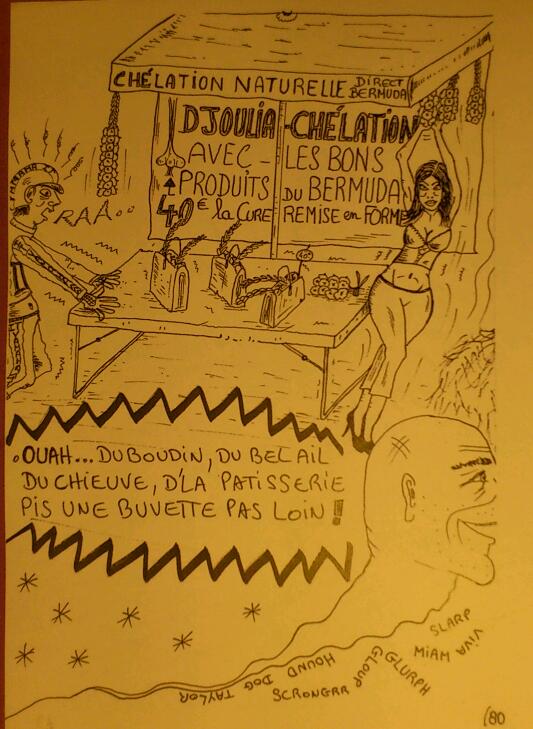 CHÉLATION NATURELLE DIRECT BERMUDA
DJOULIA-CHÉLATION
AVEC - LES BONS
PRODUITS DU BERMUDA
40€ la CURE REMISE en FORME
RAA..
OUAH... DU BOUDIN, DU BEL AIL
DU CHIEUVE, D'LA PATISSERIE
PIS UNE BUVETTE PAS LOIN!
SLARP
VIVA
MIAM
GLURPH
GLOUP
SCRONGRR
HOUND DOG TAYLOR
(80